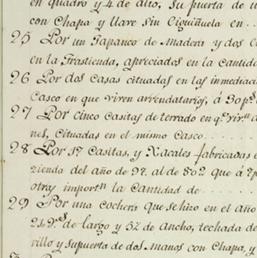 en quadro y 4 de alto, Su puerta de
con Chapa y llave sin Ciguiñuela en
25 Por un Tapanco de Madera y dos
en la Trastienda, apreciados en la Cantida
26 Por dos Casas cituadas en las inmediac
Casco en que viven arrendatarios, á 30 p.s
27 Por Cinco Casitas de terrado en q.e
nes, Cituadas en el mismo Casco
28 Por Casitas, y Xacales fabricadas
zienda del año de 97. al de 802 que á
otras import.n la Cantidad de
29 Por una cochera que se hizo en el año
de largo y 5½ de Ancho, techada de
rillo y su puerta de dos manos con Chapa, y